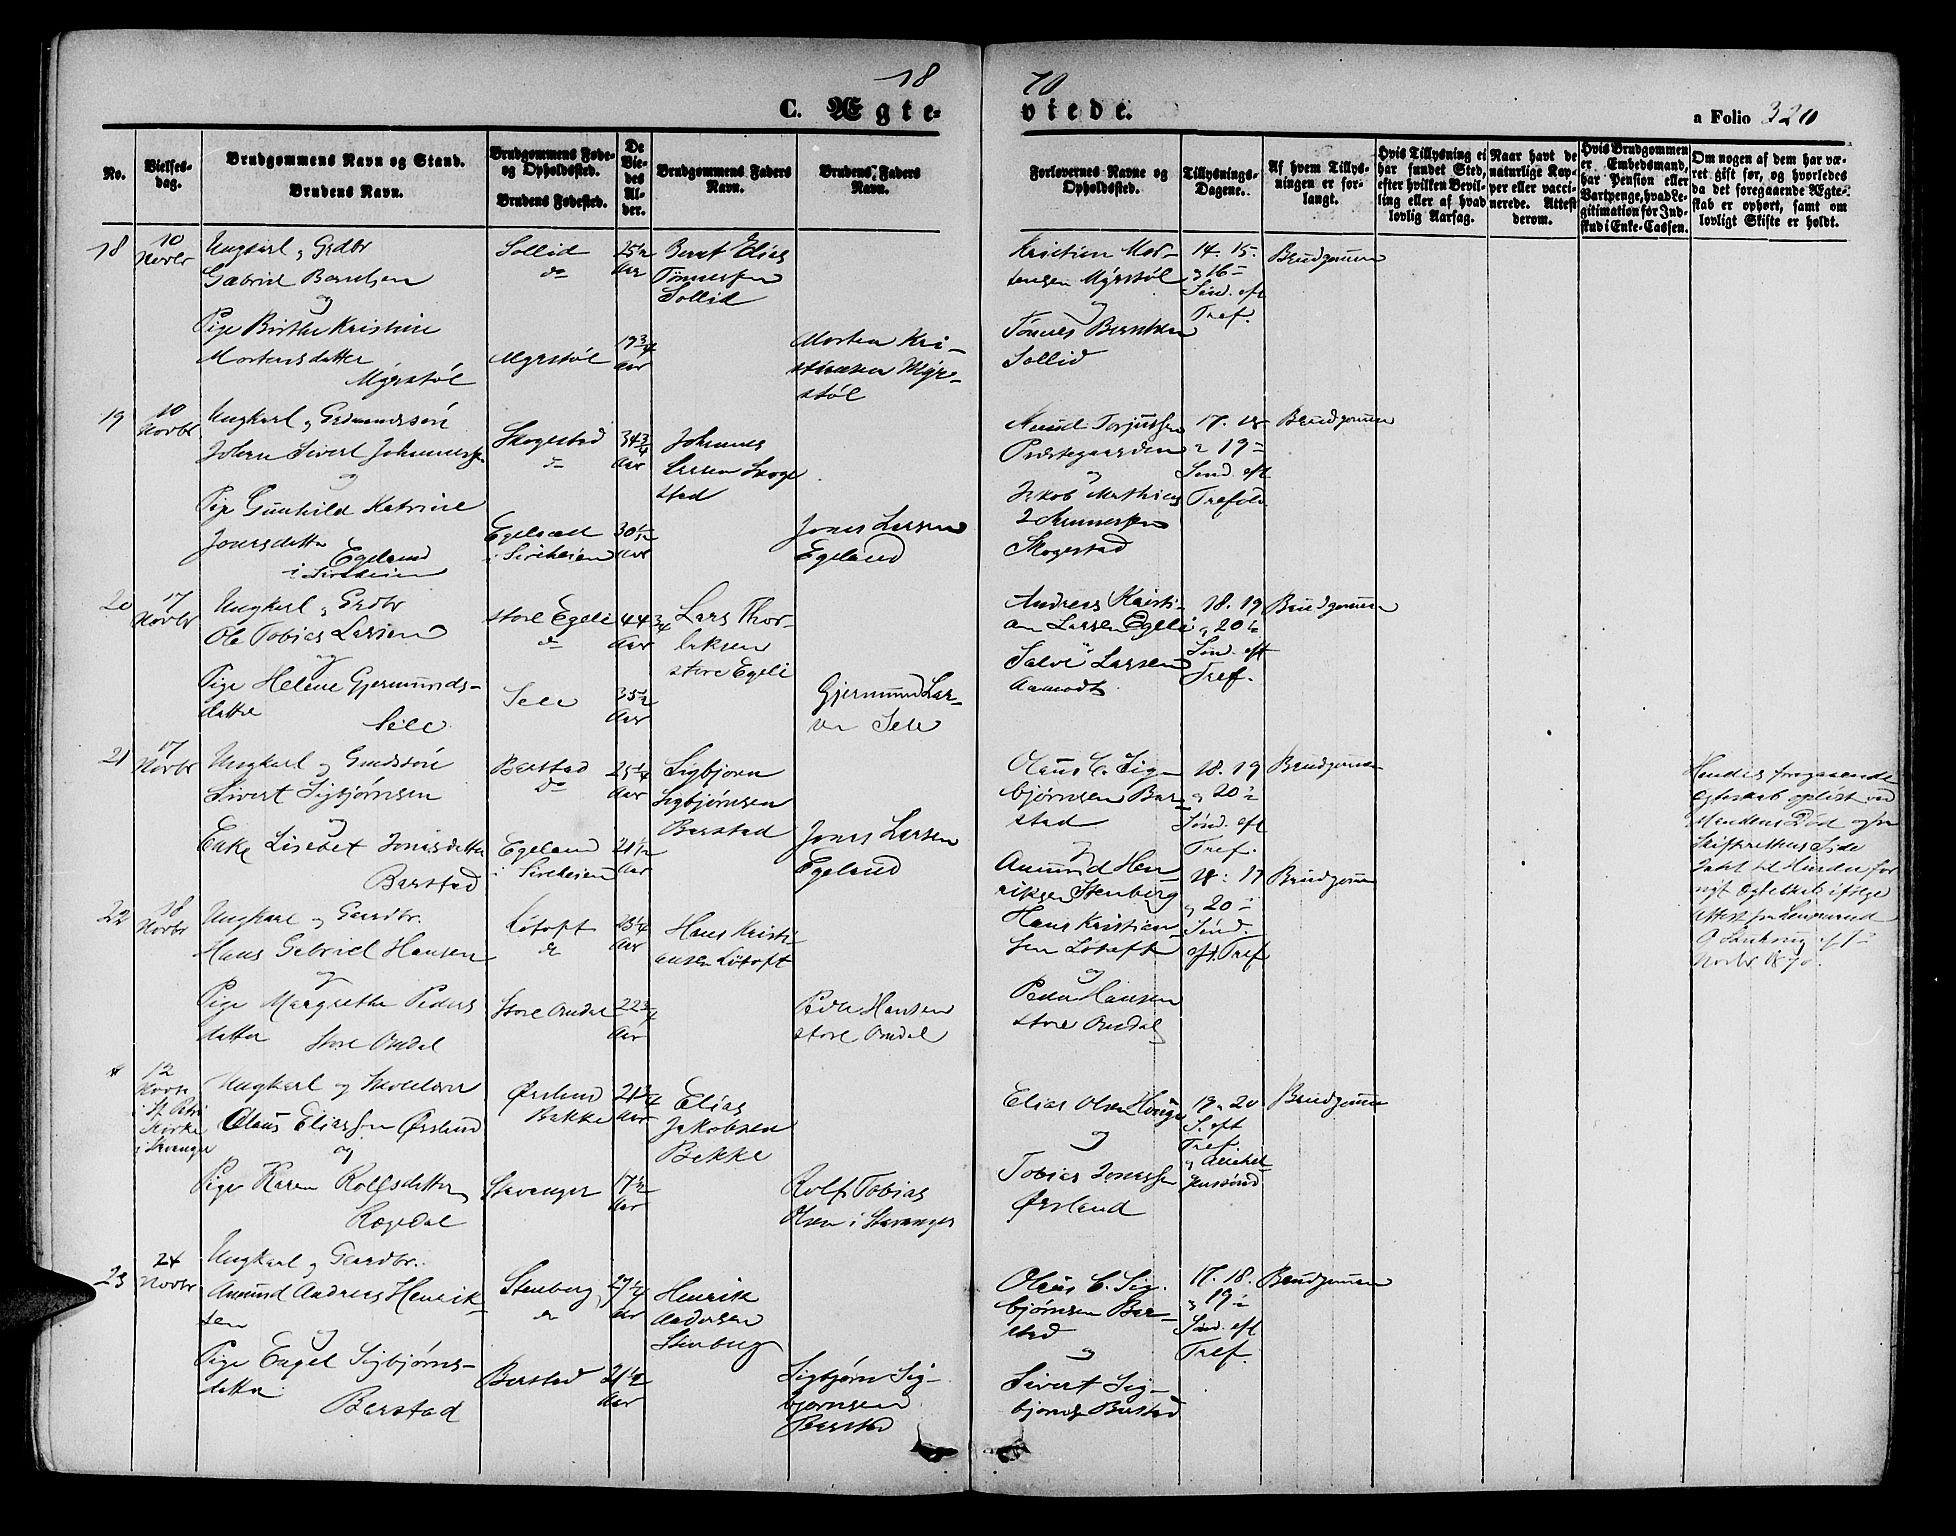 18
70
C. Ægte-
viede.
a Folio 320
No.
Vielses-
dag.
Brudgommens Navn og Stand.
Brudens Navn.
Brudgommens Føde-
og Opholdssted.
Brudens Fødested.
De
Vie-
des
Al-
der.
Brudgommens Faders
Navn.
Brudens Faders
Navn.
Forlovernes Navne og
Opholdssted.
Tillysnings-
Dagene.
Af hvem Tillys-
ningen er for-
langt.
Hvis Tillysning ei
har fundet Sted,
efter hvilken Bevil-
ling eller af hvad
lovlig Aarsag.
Naar havt de
naturlige Kop-
per eller vacci-
nerede. Attest
derom.
Hvis Brudgommen
er Embedsmand,
har Pension eller
Vartpenge, hvad Le-
gitimation for Ind-
skud i Enke-Cassen.
Om nogen af dem har væ-
ret gift før, og hvorledes
da det foregaaende Ægte-
skab er ophørt, samt om
lovligt Skifte er holdt.
18
10
Novbr
Ungkarl og Grdbr
Gabriel Berntsen
og
Pige Birthe Kristine
Mortensdatter
Myrstøl
Sollid
do
Myrstøl
25 1/2
Aar
19 3/4
Aar
Bernt Elias
Tønnessen
Sollid
Morten Kri-
stiansen Myr-
støl
Kristian Mor-
tensen Myrstøl
og
Tønnes Berntsen
Sollid
14. 15.
og 16de
Sønd. eft
Tref.
Brudgommen
19
10
Novbr
Ungkarl og Grdmandssøn
Johan Sivert Johanness.
og
Pige Gunhild Katrine
Jonasdatter
Egeland
i Sireheien
Skogestad
do
Egeland
i Sireheien
34 3/4
Aar
30 1/2
Aar
Johannes
Larsen Skoge
stad
Jonas Larsen
Egeland
Amund Torjussen
Præstegaarden
og
Jakob Mathias
Johannessen
Skogestad
17. 18
og 19de
Sønd. eft
Trefold
Brudgommen
20
17
Novbr
Ungkarl og Grdbr
Ole Tobias Larsen
og
Pige Helene Gjermunds-
datter
Sele
store Egeli
do
Sele
44 3/4
Aar
35 1/2
Aar
Lars Thor-
laksen
store Egeli
Gjermund Lar-
sen Sele
Andreas Kristi-
an Larsen Egeli
Salve Larsen
Aamodt
18. 19
og 20de
Sønd. eft
Tref.
Brudgommen
21
17
Novbr
Ungkarl og Grdssøn
Sivert Sigbjørnsen
og
Enke Lisebet Jonasdatter
Barstad
Barstad
do
Egeland
i Sireheien
25 1/4
Aar
21 1/2
Aar
Sigbjørn
Sigbjørnsen
Barstad
Jonas Larsen
Egeland
Olaus C. Sig-
bjørnsen Bar-
stad
og
Amund Hen-
riksen Stenberg
18. 19
og 20de
Sønd. eft
Tref.
Brudgommen
Hendes foregaaende
Egteskab opløst ved
Mandens Død og fra
Skifterettens Side
Intet til Hinder for
nyt Egteskab ifølge
Attest fra Lensmand
Novbr 1870.
22
18
Novbr
Ungkarl og Gaardbr.
Hans Gabriel Hansen
og
Pige Margrethe Peders
datter
Store Omdal
Løtoft
do
Store Omdal
23 1/4
Aar
22 3/4
Aar
Hans Kristi
ansen Løtoft
Peder Hansen
store Omdal
Hans Kristian-
sen Løtoft
og
Peder Hansen
store Omdal
18. 19
og 20de
Sønd.
eft. Tref
Brudgommen
12
Novbr
i St. Petri
Kirke
i Stavanger
Ungkarl og Skolelærer
Olaus Eliassen Ørsland
og
Pige Karen Rolfsdatter
Rægedal
Ørsland
Bakke
Stavanger
21 3/4
Aar
17 1/2
Aar
Elias
Jakobsen
Bakke
Rolf Tobias
Olsen i Stavanger
Elias Olsen Houge
og
Tobias Jonassen
Ørsland
19 og 20
S. eft
Tref.
Brudgommen
23
24
Novbr
Ungkarl og Gaardbr.
Amund Andreas Henrik-
sen
og
Pige Engel Sigbjørns-
datter
Barstad
Stenberg
do
Barstad
27 1/4
Aar
21 1/2
Aar
Henrik
Andersen
Stenberg
Sigbjørn Sig-
bjørnsen
Barstad
Olaus C. Sig-
bjørnsen Bar-
stad
og
Sivert Sig-
bjørns. Barstad
17. 18.
og 19de
Sønd. eft
Tref.
Brudgommen